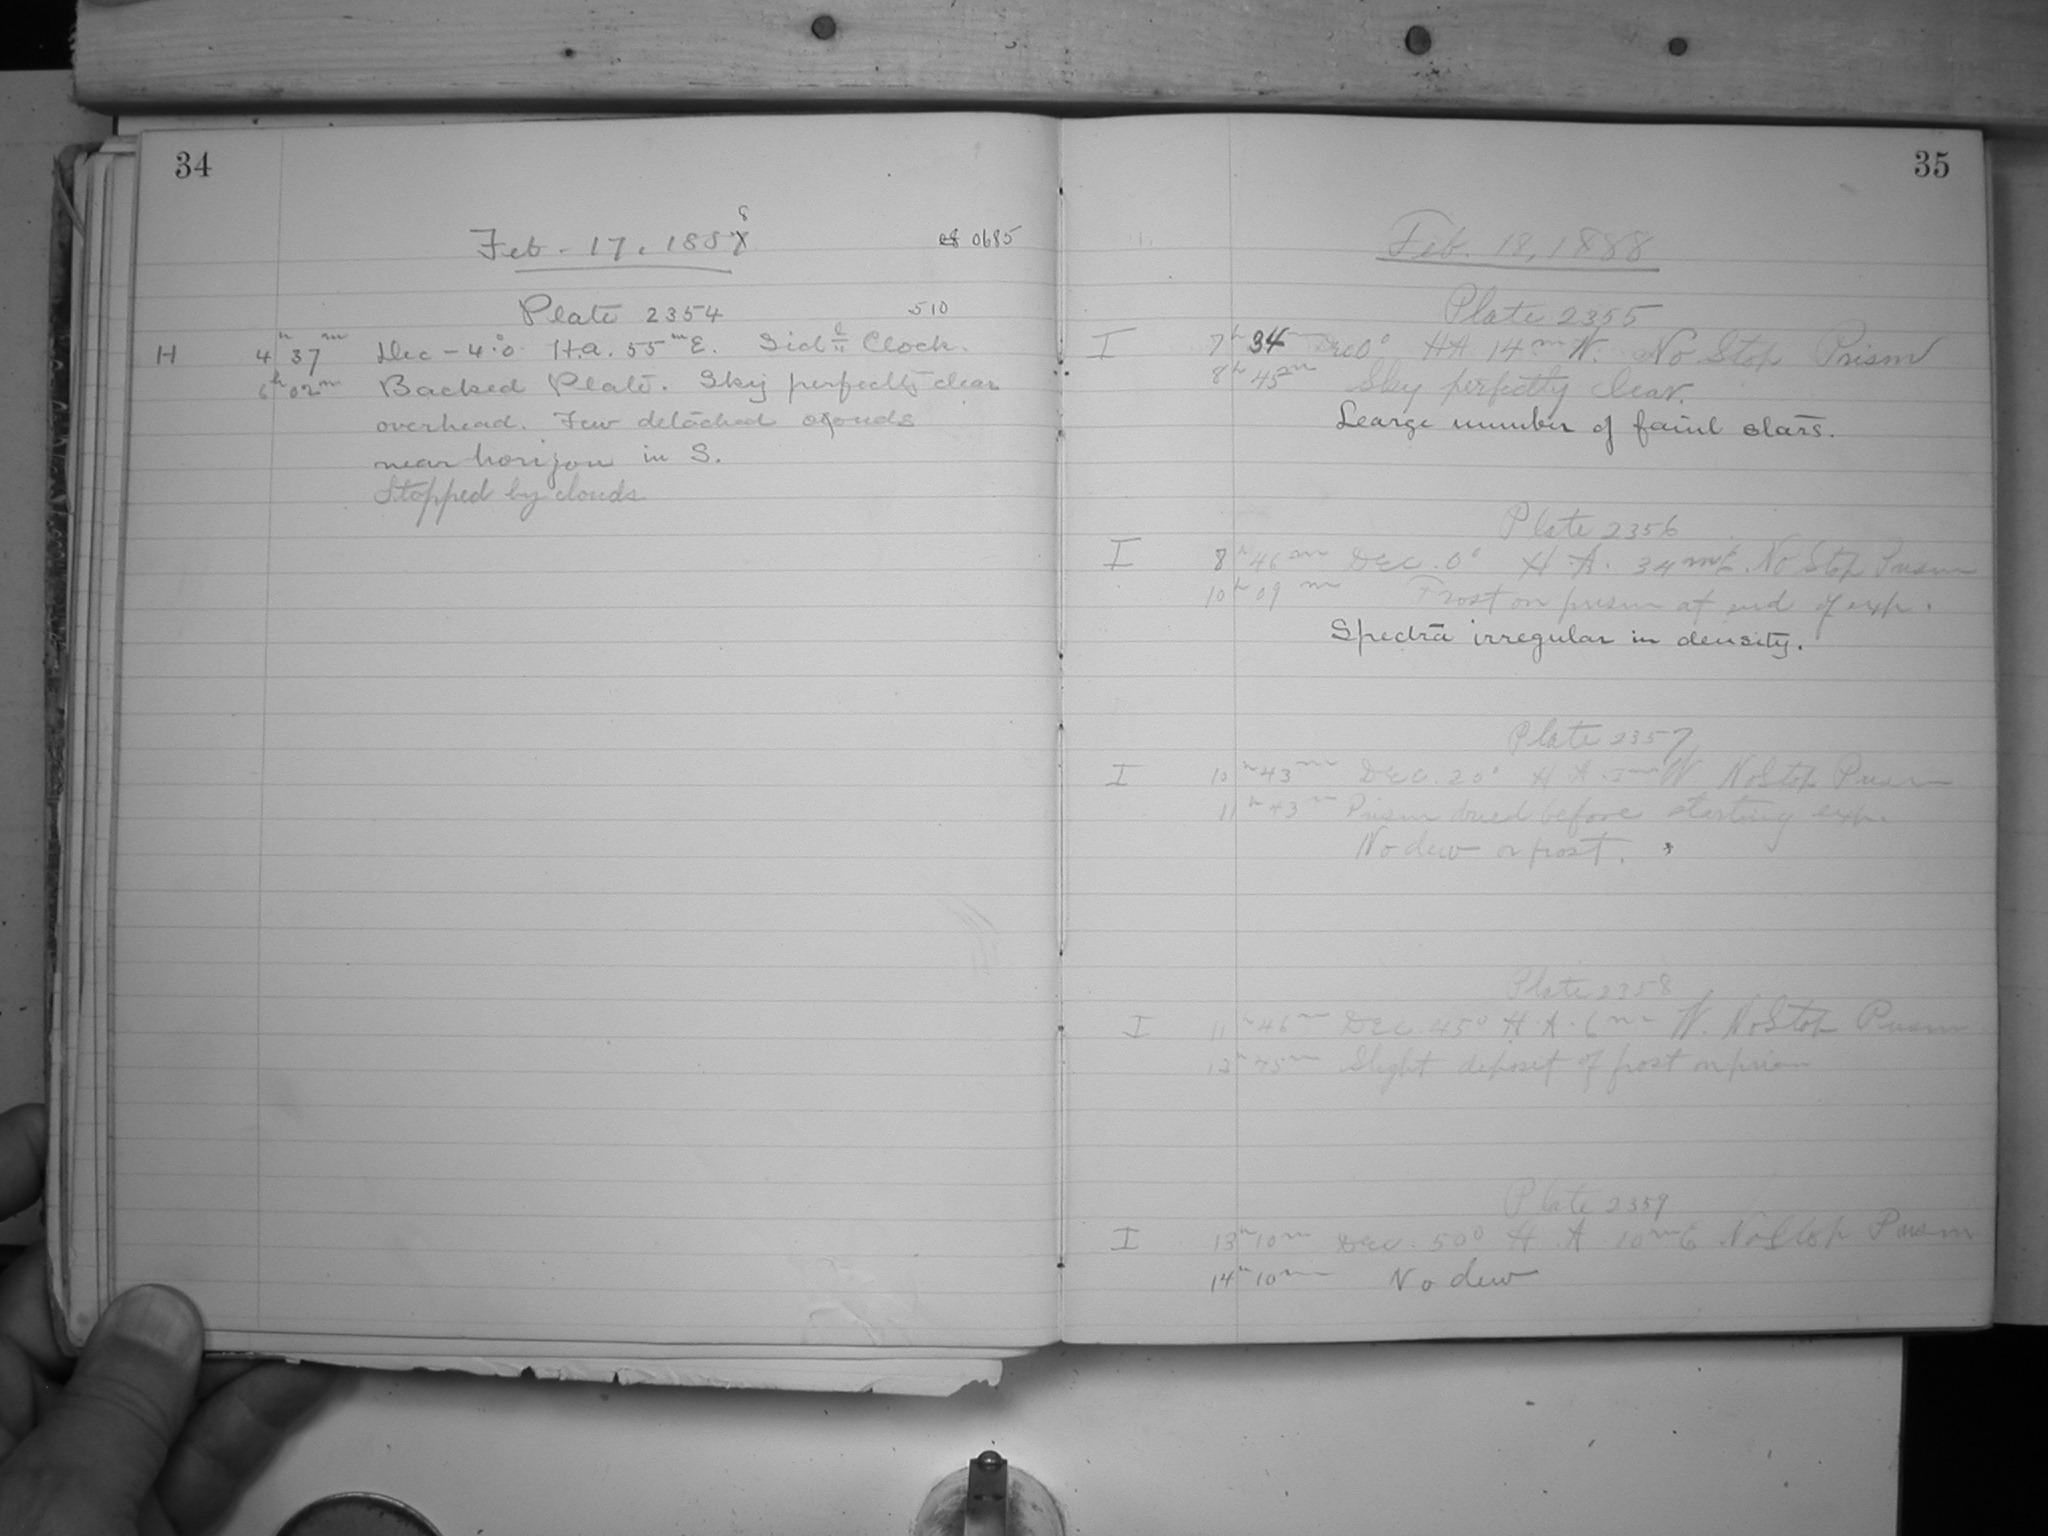 34
Feb. 17, 1888
0685
Plate 2354
510
H 4h 37m Dec -4°.0 H.a. 55m E. Sid Clock.
6h 02m Backed Plate. Sky perfectly clear
overhead. Few detached clouds
near horizon in S.
Stopped by clouds
35
Feb. 18, 1888
Plate 2355
I 7h 34m Dec 0° H A 14m W. No Stop Prism
8h 45m Sky perfectly clear.
Learge number of faint stars.
Plate 2356
I 8h 46m Dec. 0° H. A. 34m E. No Stop Prism
10h 09m Frost on prism at end of exp.
Spectra irregular in density.
Plate 2357
I 10h 43m Dec. 20° H A W No Stop Prism
11h 43m Prism dried before starting exp.
No dew or frost.
Plate 2358
I 11h 46m Dec. 45° H. A. 6m W. No Stop Prism
Slight deposit of frost on prism
Plate 2359
I 13h 10m Dec. 50° H. A. 10m E No Stop Prism
14h 10m No dew